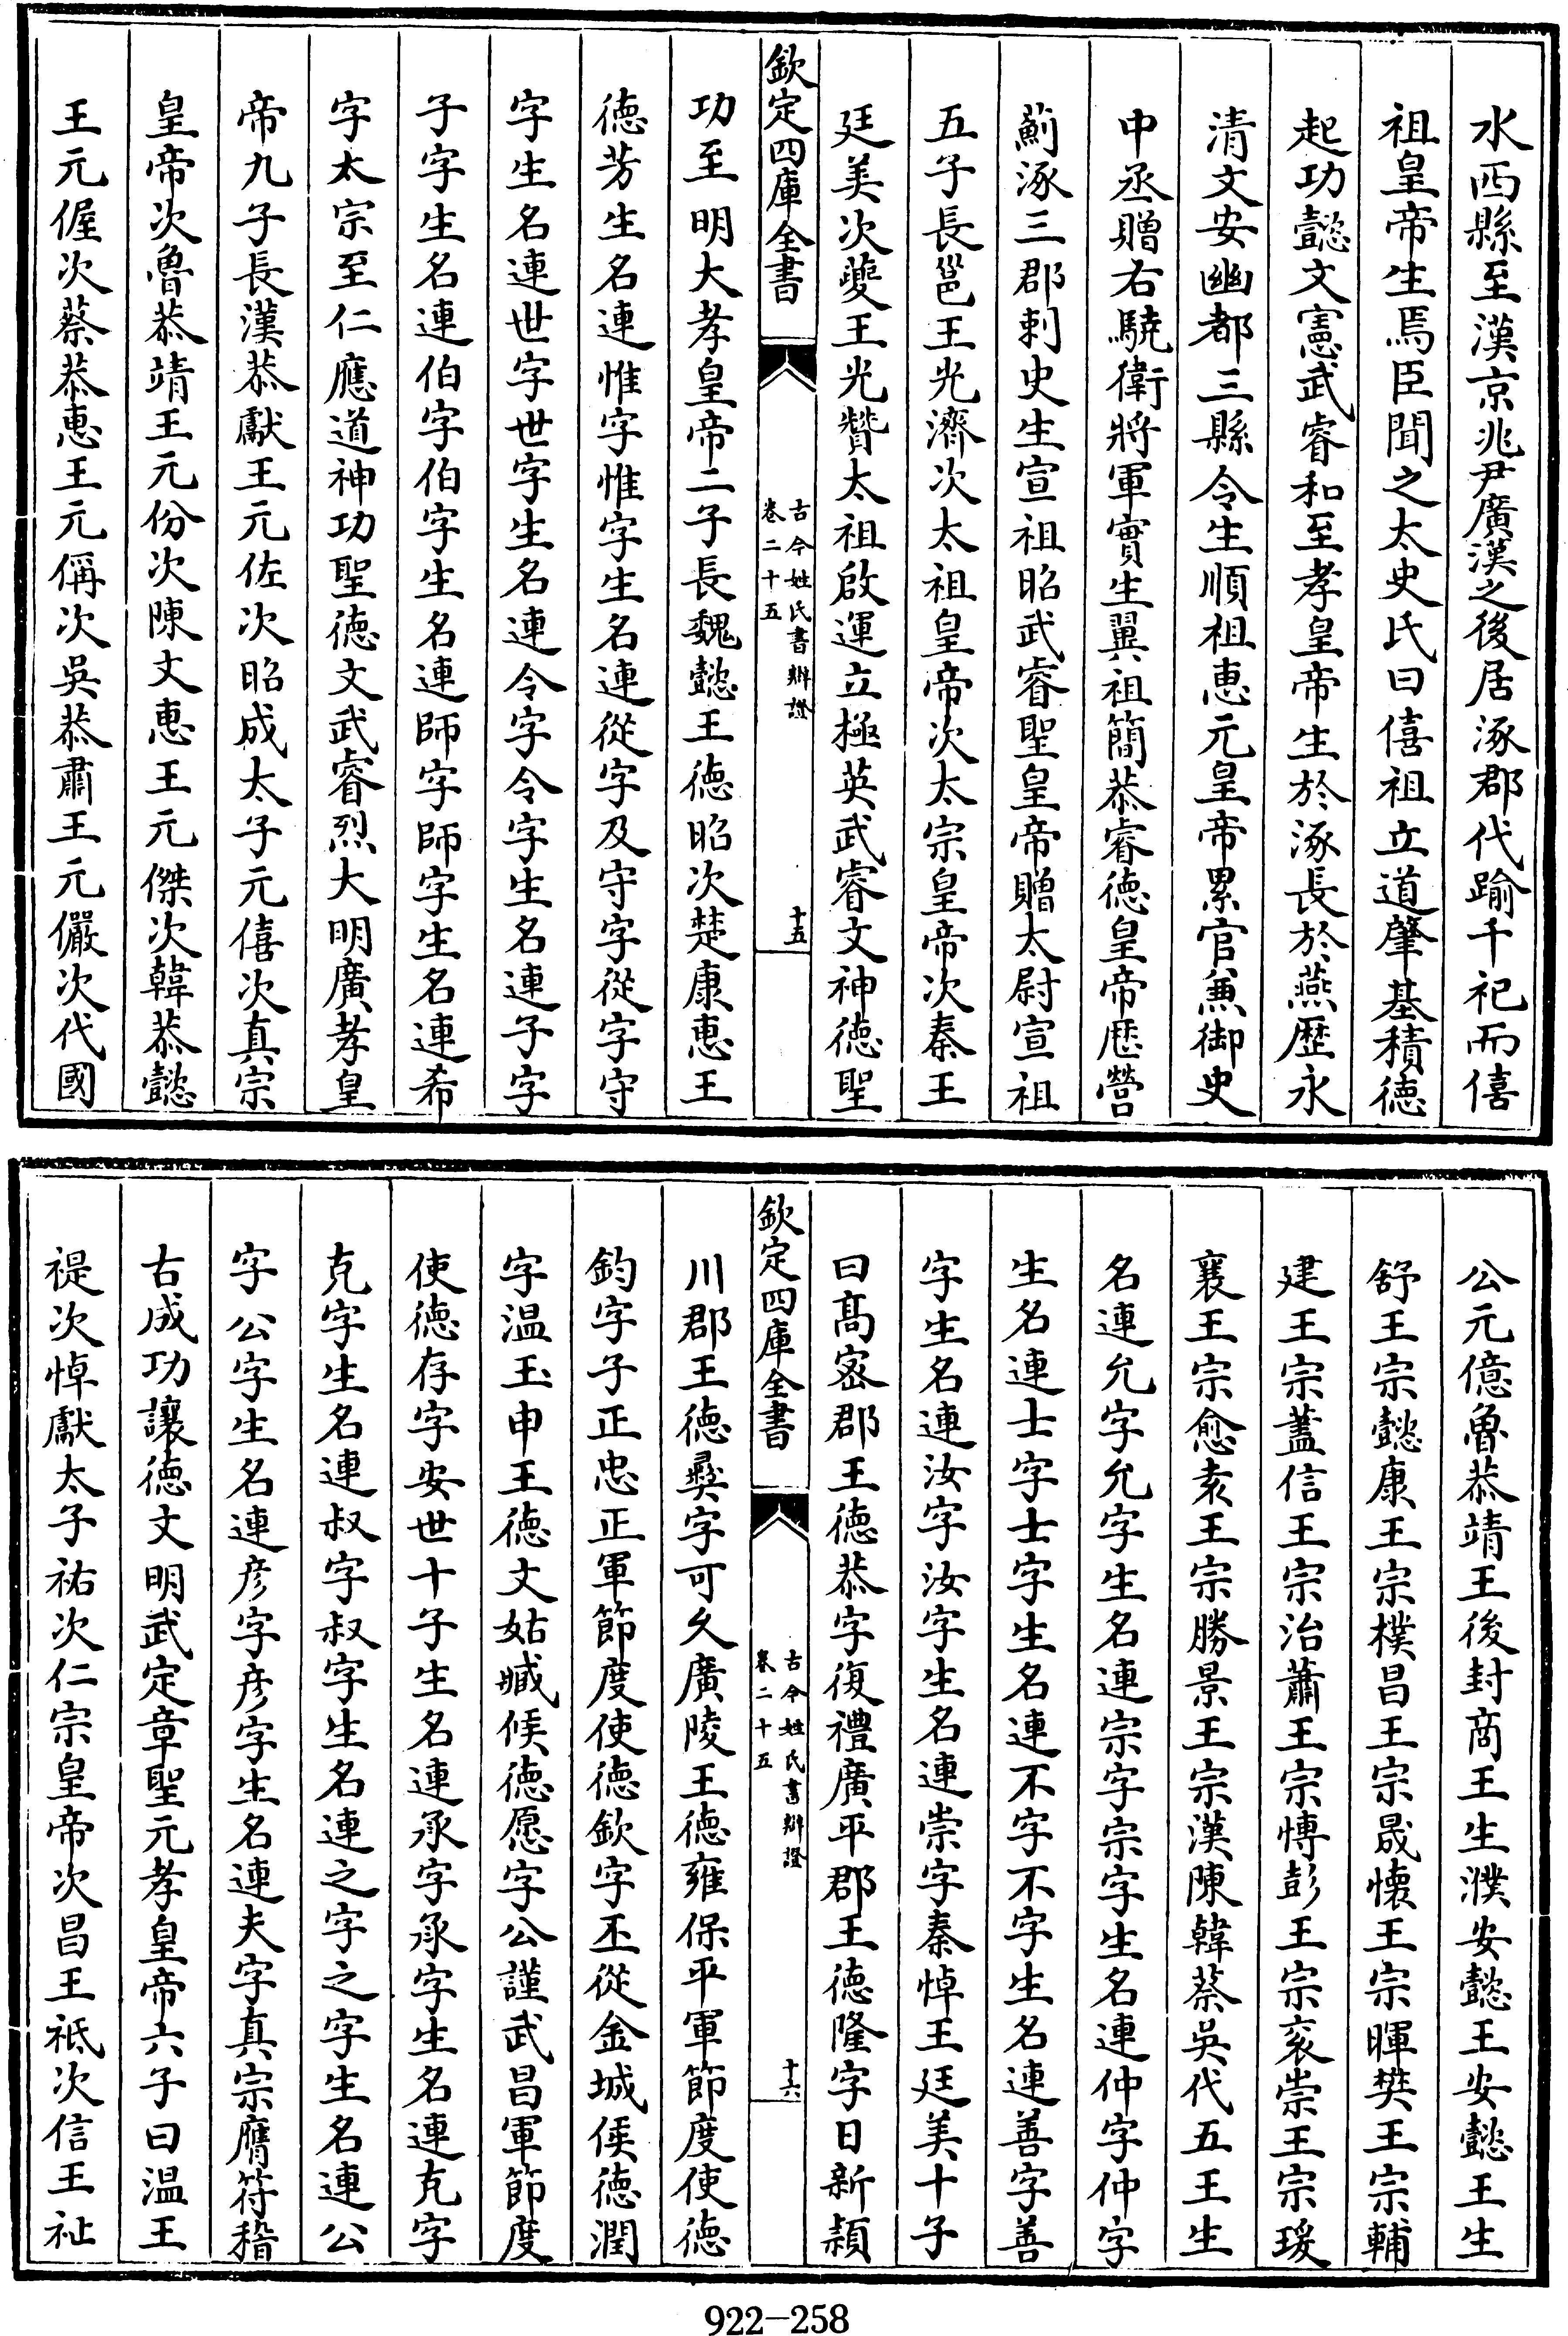 水西縣至漢京兆尹廣漢之後居涿郡代踰千祀而僖
祖皇帝生焉臣聞之太史氏曰僖祖立道肇基積德
起功懿文憲武睿和至孝皇帝生於涿長於燕歴永
清文安幽都三縣令生順祖惠元皇帝累官兼御史
中丞贈右驍衛將軍實生翼祖簡恭睿德皇帝歴營
薊涿三郡刺史生宣祖昭武睿聖皇帝贈太尉宣祖
五子長邕王光濟次太祖皇帝次太宗皇帝次秦王
廷美次夔王光贊太祖啟運立極英武睿文神德聖
欽定四庫全書
古今姓氏書辯證
卷二十五
十五
功至明大孝皇帝二子長魏懿王德昭次楚康惠王
德芳生名連惟字惟字生名連從字及守字從字守
字生名連世字世字生名連令字令字生名連子字
子字生名連伯字伯字生名連師字師字生名連希
字太宗至仁應道神功聖德文武睿烈大明廣孝皇
帝九子長漢恭獻王元佐次昭成太子元僖次真宗
皇帝次魯恭靖王元份次陳文惠王元傑次韓恭懿
王元偓次蔡恭惠王元偁次吳恭肅王元儼次代國
公元億魯恭靖王後封商王生濮安懿王安懿王生
舒王宗懿康王宗樸昌王宗晟懷王宗暉樊王宗輔
建王宗蓋信王宗治蕭王宗愽彭王宗衮崇王宗瑗
襄王宗愈袁王宗勝景王宗漢陳韓蔡吳代五王生
名連允字允字生名連宗字宗字生名連仲字仲字
生名連士字士字生名連不字不字生名連善字善
字生名連汝字汝字生名連崇字秦悼王廷美十子
曰髙密郡王德恭字復禮廣平郡王德隆字日新潁
欽定四庫全書
古今姓氏書辯證
卷二十五
十六
川郡王德彞字可久廣陵王德雍保平軍節度使德
鈞字子正忠正軍節度使德欽字丕從金城侯德潤
字温玉申王德文姑臧候德愿字公謹武昌軍節度
使德存字安世十子生名連承字承字生名連克字
克字生名連叔字叔字生名連之字之字生名連公
字公字生名連彦字彦字生名連夫字真宗膺符稽
古成功讓德文明武定章聖元孝皇帝六子曰温王
禔次悼獻太子祐次仁宗皇帝次昌王祗次信王祉
922-258